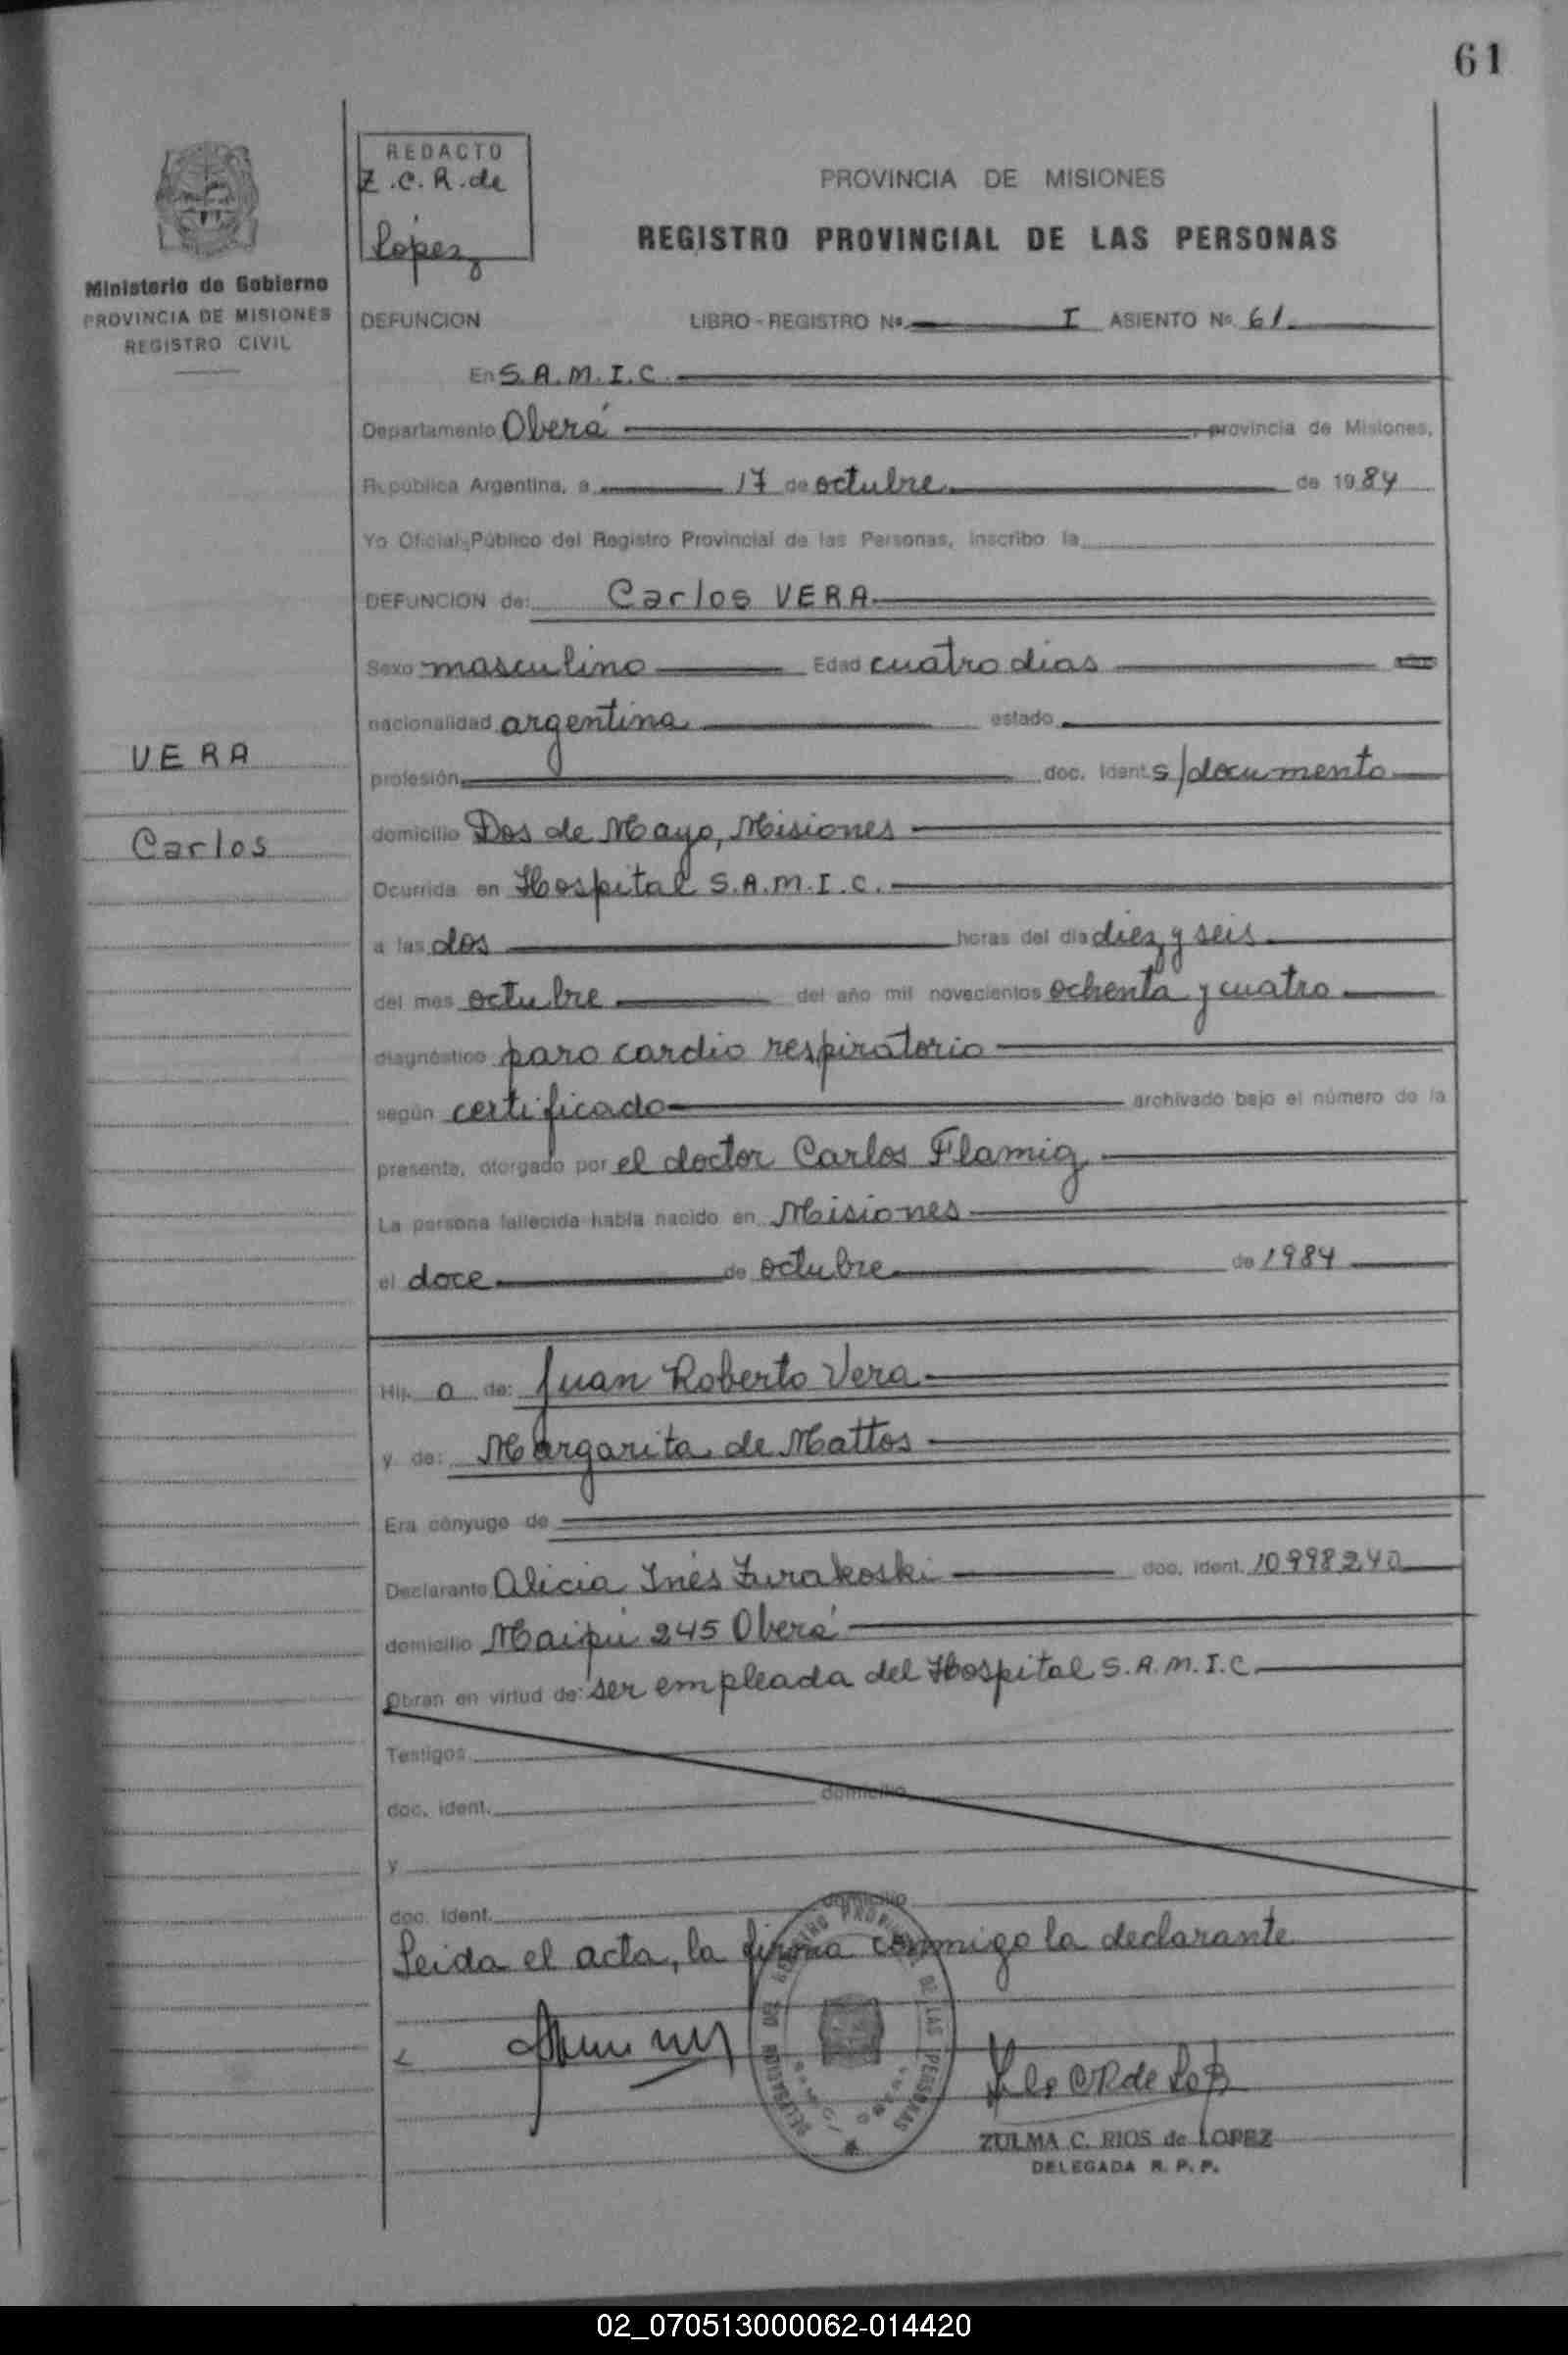 61
REDACTO
Z.C.R.de
López
PROVINCIA DE MISIONES
REGISTRO PROVINCIAL DE LAS PERSONAS
Ministerio de Gobierno
PROVINCIA DE MISIONES
REGISTRO CIVIL
DEFUNCION LIBRO - REGISTRO Nº I ASIENTO Nº 61
En S.A.M.I.C.
Departamento Oberá, provincia de Misiones,
República Argentina, a 17 de octubre de 1984
Yo Oficial Público del Registro Provincial de las Personas, inscribo la
DEFUNCION de: Carlos VERA
Sexo masculino Edad cuatro dias
nacionalidad argentina estado
VERA
profesión doc. Ident. s/documento
domicilio Dos de Mayo, Misiones
Carlos
Ocurrida en Hospital S.A.M.I.C.
a las dos horas del día diez y seis
del mes octubre del año mil novecientos ochenta y cuatro
diagnóstico paro cardio respiratorio
según certificado archivado bajo el número de la
presente, otorgado por el doctor Carlos Flamig
La persona fallecida había nacido en Misiones
el doce de octubre de 1984
Hij o de: Juan Roberto Vera
y de: Margarita de Mattos
Era cónyuge de
Declarante Alicia Inés Zurakoski doc. ident. 10998240
domicilio Maipú 245 Oberá
Obran en virtud de: ser empleada del Hospital S.A.M.I.C.
Testigos
doc. ident. domicilio
y
doc. ident. domicilio
Leida el acta, la firma conmigo la declarante
REGISTRO PROVINCIAL DE LAS PERSONAS
ZULMA C. RIOS de LOPEZ
DELEGADA R. P. P.
02_070513000062-014420